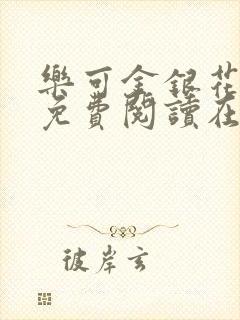 樂可金銀花
免費閱讀在
彼岸玄